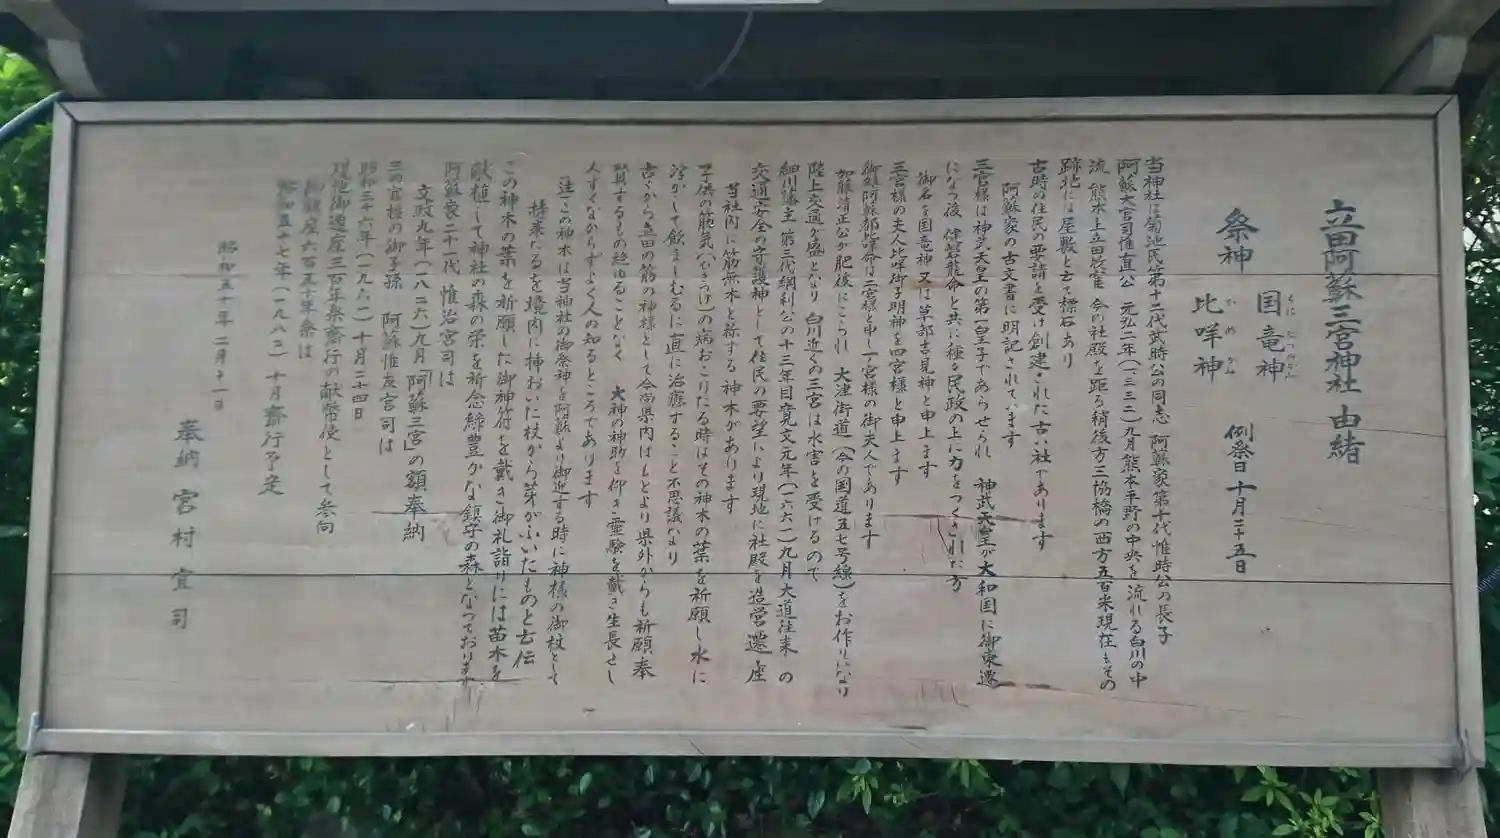 立田阿蘇三宮神社 由緒
祭神 国竜神 例祭日 十月二十五日
くに たつのかみ
比咩神
ひ め かみ
当神社は菊池氏第十二代武時公の同志 阿蘇家第十代惟時公の長子
阿蘇大宮司惟直公 元弘二年(一三三二)九月熊本平野の中央を流れる白川の中
流 熊本上立田 今の社殿を距る稍後方三協橋の西方五百米現在もその
跡地には屋敷と云て標石あり
古時の住民の要請を受け創建された古い社であります
阿蘇家の古文書に明記されています
三宮様は神武天皇の第一皇子であらせられ 神武天皇が大和国に御東遷
になつ後 健磐龍命と共に 種々民政の上に力をつくされた方
御名を国竜神又は草部吉見神と申上ます
三宮様の夫人比咩御子明神を四宮様と申上ます
御雄阿蘇都比咩命は二宮様と申し一宮様の御夫人であります
加藤清正公が肥後にこられ 大津街道(今の国道五七号線)をお作りになり
陸上交通が盛となり 白川近くの三宮は水害を受けるので
細川藩主 第三代綱利公の十三年目寛文元年(一六六一)九月大道往来 の
交通安全の守護神として住民の要望により現地に社殿を造営遷座
当社内に筋無木と称する神木があります
子供の筋気の病おこりたる時はその神木の葉を祈願し水に
浮かして飲ましむるに直に治癒すること不思議なり
古くから立田の筋の神様として今尚県内はもとより県外からも祈願奉
賛するもの絶ゆることなく 大神の神助を仰ぎ霊験を戴き生長せし
人すくなからずよく人の知るところであります
注 この神木は当神社の御祭神を阿蘇より御迎する時に神様の御杖として
捧葉たるを境内に挿おいた杖から芽がふいたものと云伝
この神木の葉を祈願した御神符を戴き御礼詣りには苗木を
献植して神社の森の栄を祈念緑豊かな鎮守の森となつております
阿蘇家二十一代 惟治宮司は
文政九年(一八二六)九月「阿蘇三宮」の額奉納
三四宮様の御子孫 阿蘇惟友宮司は
昭和三六年(一九六一)十月二四日
現地御遷座三百年祭斎行の献幣使として参向
御鎮座六百五十年祭は
昭和五七年(一九八二)十月斎行予定
昭和五十年二月十一日
奉納 宮村宜司